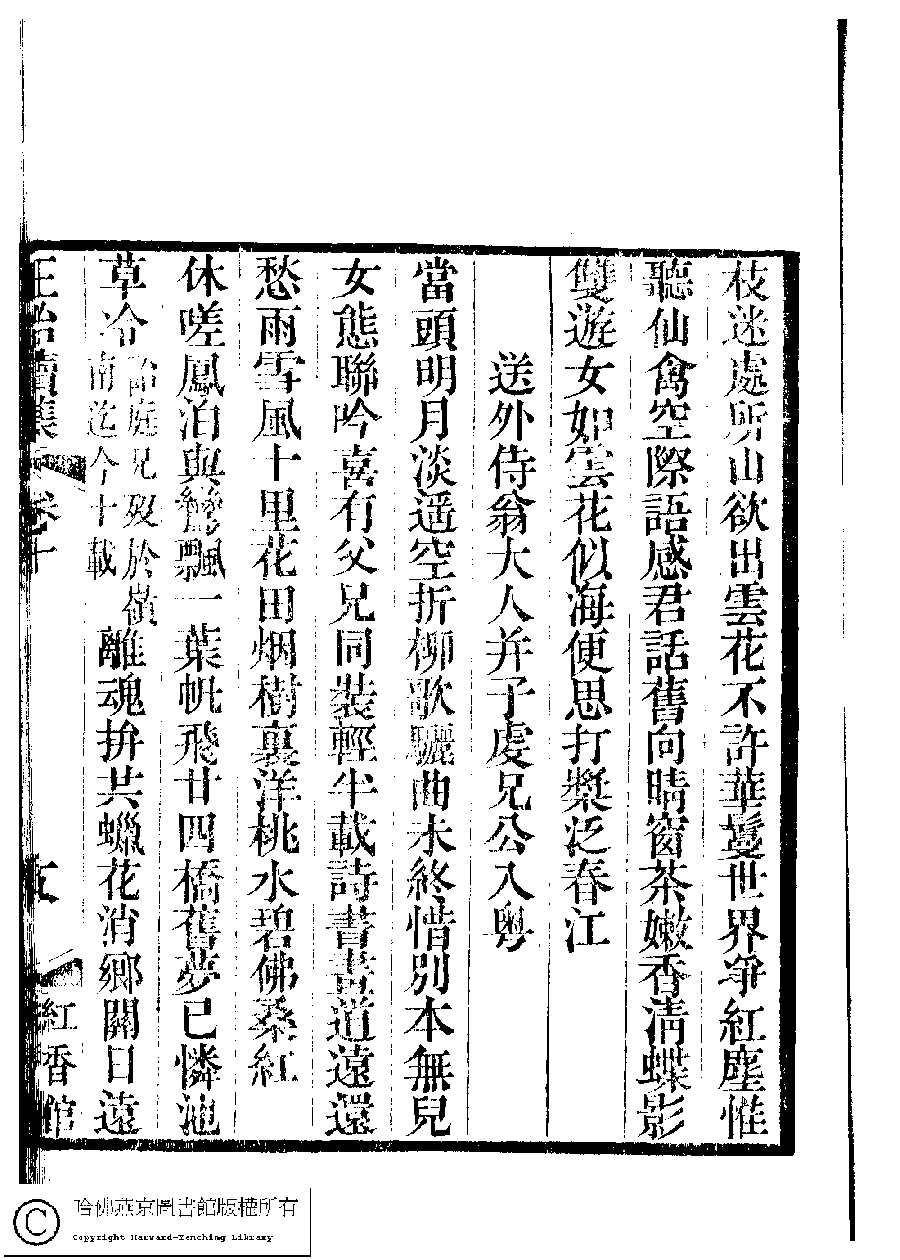 枝迷處所山欲出雲花不許華鬘世界淨紅塵惟
聽仙禽空際語感君話舊向晴窗茶嫩香清蝶影
雙遊女如雲花似海便思打槳泛春江
送外侍翁大人并子虔兄公入粤
當頭明月淡遥空折柳歌驪曲未終惜別本無兒
女態聯吟喜有父兄同裝輕半載詩書畫道遠還
愁雨雪風十里花田烟樹裏洋桃水碧佛桑紅
休嗟鳳泊與鸞飄一葉帆飛廿四橋舊夢已憐池
草冷
詒庭兄歿於嶺
南迄今十載
離魂拚共蠟花消鄉關日遠
續集 卷十 五 紅香館
哈佛燕京圖書館版權所有
Copyright Harvard-Yenching Library